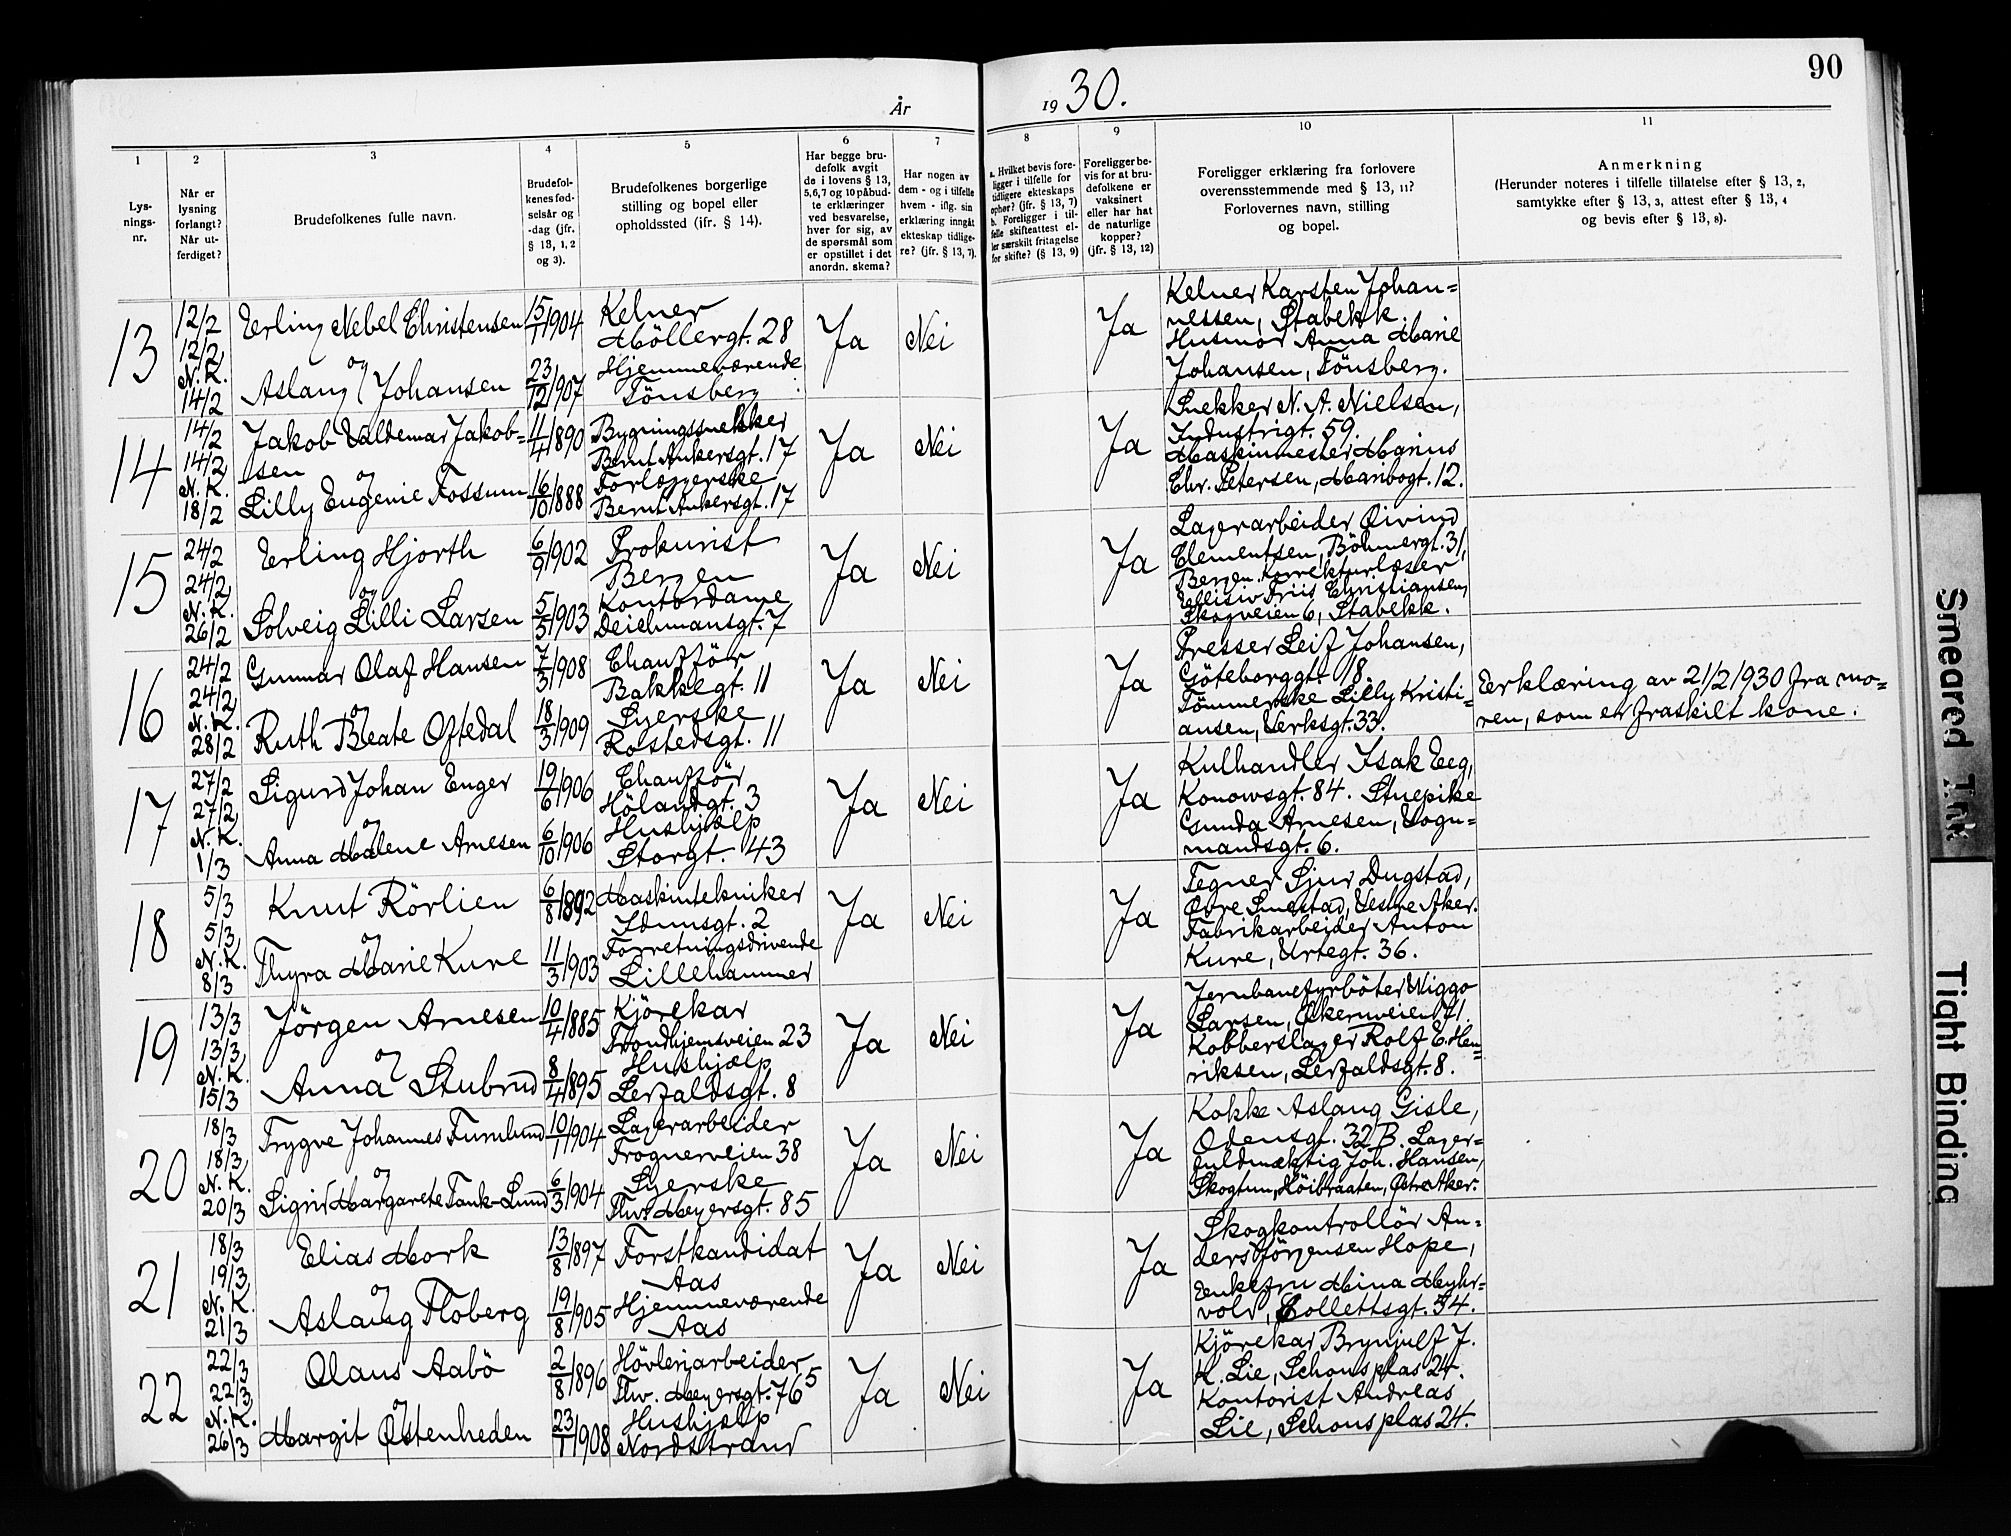 90
År 1930.
1
2
3
4
5
6
7
8
9
10
11
Lys-
nings-
nr.
Når er
lysning
forlangt?
Når ut-
ferdiget?
Brudefolkenes fulle navn.
Brudefol-
kenes fød-
selsår og
-dag (jfr.
§ 13, 1, 2
og 3).
Brudefolkenes borgerlige
stilling og bopel eller
opholdssted (jfr. § 14).
Har begge bru-
defolk avgit
de i lovens § 13,
5,6,7 og 10 påbud-
te erklæringer
ved besvarelse,
hver for sig, av
de spørsmål som
er opstillet i det
anordn. skema?
Har nogen av
dem - og i tilfelle
hvem - iflg. sin
erklæring inngått
ekteskap tidlige-
re? (jfr. § 13, 7).
a. Hvilket bevis fore-
ligger i tilfelle for
tidligere ekteskaps
ophør? (jfr. § 13, 7)
b. Foreligger i til-
felle skifteattest el-
ler særskilt fritagelse
for skifte? (§ 13, 9)
Foreligger be-
vis for at bru-
defolkene er
vaksinert
eller har hat
de naturlige
kopper?
(jfr. § 13, 12)
Foreligger erklæring fra forlovere
overensstemmende med § 13, 11?
Forlovernes navn, stilling
og bopel.
Anmerkning
(Herunder noteres i tilfelle tillatelse efter § 13, 2,
samtykke efter § 13, 3, attest efter § 13, 4
og bevis efter § 13, 8).
13
12/2
12/2
N. K.
14/2
Erling Nebel Christensen
og
Aslaug Johansen
15/1 1904
23/12 1907
Kelner
Möllergt. 28
Hjemmeværende
Tönsberg
Ja
Nei
Ja
Kelner Karsten Johan=
nessen, Stabekk.
Husmor Anna Marie
Johansen, Tönsberg.
14
14/2
14/2
N. K.
18/2
Jakob Valdemar Jakob=
sen
og
Lilly Eugenie Fossum
11/4 1890
16/10 1888
Bygningssnekker
Bernt Ankersgt. 17
Forlæggerske
Bernt Ankersgt. 17
Ja
Nei
Ja
Snekker N. A. Nielsen,
Industrigt. 59.
Maskinmester Marius
Chr. Petersen, Maribogt. 12.
15
24/2
24/2
N. K.
26/2
Erling Hjorth
og
Solveig Lilli Larsen
6/9 1902
5/5 1903
Prokurist
Bergen
Kontordame
Deichmansgt. 7
Ja
Nei
Ja
Lagerarbeider Öivind
Clementsen, Böhmergt. 31,
Bergen. Korrekturlæser
Ellisiv Friis Christiansen,
Skogveien 6, Stabekk.
16
24/2
24/2
N. K.
28/2
Gunnar Olaf Hansen
og
Ruth Beate Oftedal
7/3 1908
18/3 1909
Chaufför
Bakkegt. 11
Syerske
Rostedsgt. 11
Ja
Nei
Ja
Presser Leif Johansen,
Göteborggt. 18.
Tömmerske Lilly Kristi=
ansen, Verksgt. 33.
Erklæring av 21/2 1930 fra mo=
ren, som er fraskilt kone.
17
27/2
27/2
N. K.
1/3
Sigurd Johan Enger
og
Anna Malene Arnesen
19/6 1906
6/10 1906
Chaufför
Hölandgt. 3
Hushjælp
Storgt. 43
Ja
Nei
Ja
Kulhandler Isak Eeg,
Konowsgt. 84. Stuepike
Gunda Arnesen, Vogn=
mandsgt. 6.
18
5/3
5/3
N. K.
8/3
Knut Rörlien
og
Thyra Marie Kure
6/8 1892
11/3 1903
Maskintekniker
Idunsgt. 2
Forretningsdrivende
Lillehammer
Ja
Nei
Ja
Tegner Sjur Dugstad,
Övre Smestad, Vestre Aker.
Fabrikarbeider Anton
Kure, Urtegt. 36.
19
13/3
13/3
N. K.
15/3
Jörgen Arnesen
og
Anna Stubrud
10/4 1885
8/4 1895
Kjörekar
Trondhjemsveien 23
Hushjælp
Lerfaldsgt. 8
Ja
Nei
Ja
Jernbanefyrböter Viggo
Larsen, Økernveien 71.
Kobberslager Rolf E. Hen=
riksen, Lerfaldsgt. 8.
20
18/3
18/3
N. K.
20/3
Trygve Johannes Furulund
og
Sigrid Margarete Tank-Lund
10/1 1904
6/3 1904
Lagerarbeider
Frognerveien 38
Syerske
Thv. Meyersgt. 85
Ja
Nei
Ja
Kokke Aslaug Gisle,
Odensgt. 32 B. Lager=
fuldmæktig Joh. Hansen,
Skogtun, Höibraaten, Östre Aker.
21
18/3
19/3
N. K.
21/3
Elias Mork
og
Aslaug Floberg
13/8 1897
19/8 1905
Forstkandidat
Aas
Hjemmeværende
Aas
Ja
Nei
Ja
Skogkontrollör An=
ders Jörgensen Hope,
Enkefru Mina Myhr=
vold, Collettsgt. 54.
22
22/3
22/3
N. K.
26/3
Olaus Aabö
og
Margit Östenheden
2/8 1896
23/1 1908
Hövleriarbeider
Thv. Meyersgt. 76 5
Hushjælp
Nordstrand
Ja
Nei
Ja
Kjörekar Brynjulf J.
K. Lie, Schous plas 24.
Kontorist Andreas
Lie, Schous plas 24.
Smeared Ink
Tight Binding